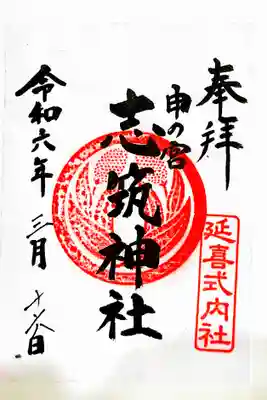 奉拝
延喜式内社
申の宮
志筑神社
令和六年三月十六日